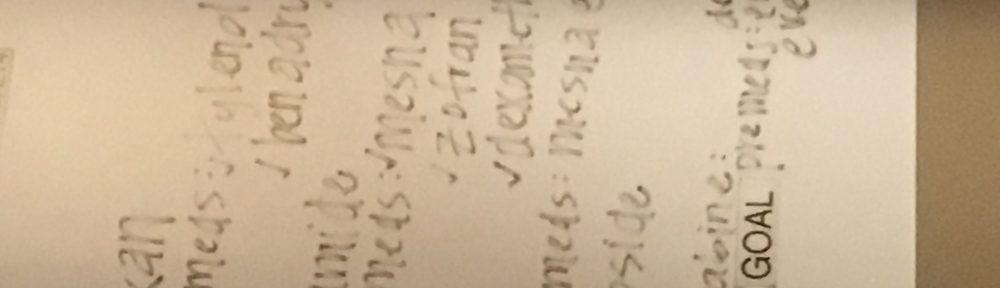 xan
meds: ✓tylenol
✓benadry
mide
meds: ✓mesna
✓zofran
✓dexameth
meds: mesna
oside
abine:
GOAL premeds:
eve